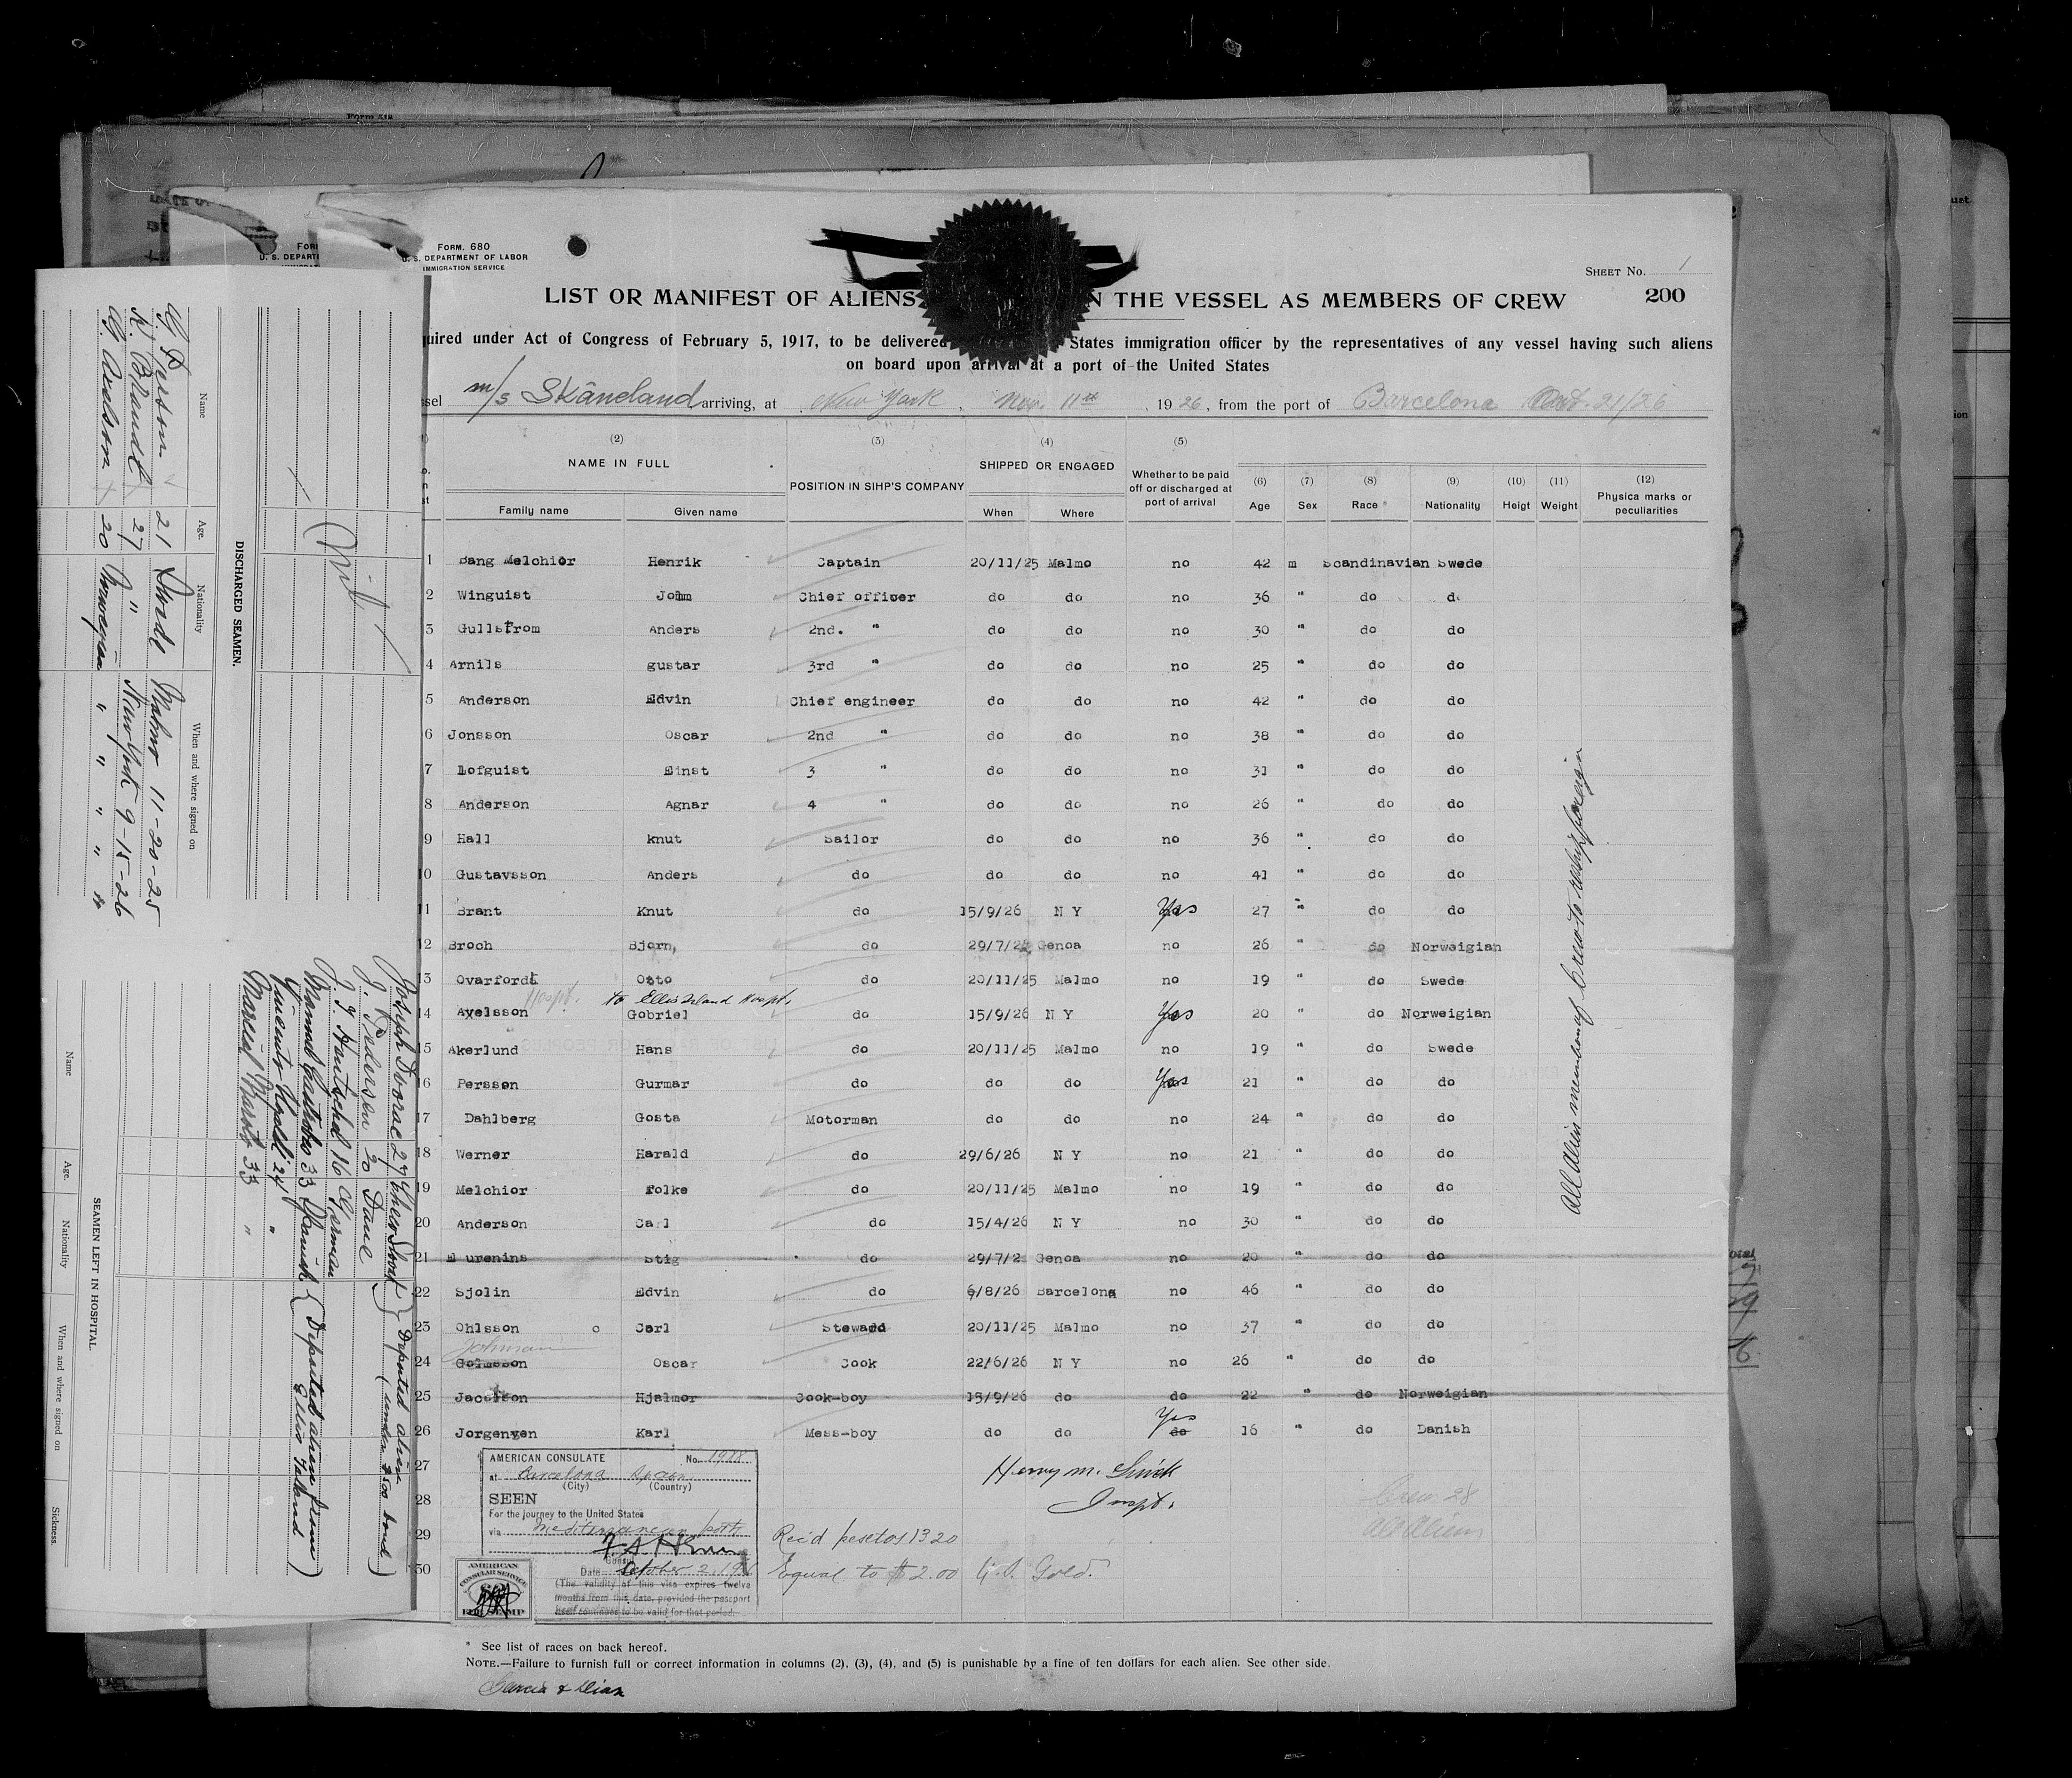 Form 512
FORM. 680
U. S. DEPARTMENT OF LABOR
IMMIGRATION SERVICE
SHEET No. 1
LIST OR MANIFEST OF ALIENS N THE VESSEL AS MEMBERS OF CREW 200
uired under Act of Congress of February 5, 1917, to be delivered States immigration officer by the representatives of any vessel having such aliens
on board upon arrival at a port of the United States
ssel m/s Skåneland arriving, at New York, Nov. 11th, 1926, from the port of Barcelona Oct. 21/26
(2) NAME IN FULL (3) POSITION IN SIHP'S COMPANY (4) SHIPPED OR ENGAGED (5) Whether to be paid off or discharged at port of arrival (6) Age (7) Sex (8) Race * (9) Nationality (10) Heigt (11) Weight (12) Physica marks or peculiarities
Family name Given name When Where
1 Bang Melchior Henrik Captain 20/11/25 Malmo no 42 m Scandinavian Swede
2 Winguist John Chief officer do do no 36 " do d
3 Gullstrom Anders 2nd. " do do no 30 " do do
4 Arnils gustar 3rd " do do no 25 " do do
5 Anderson Edvin Chief engineer do do no 42 " do do
6 Jonsson Oscar 2nd " do do no 38 " do do
7 Lofguist Einst 3 " do do no 31 " do do
8 Anderson Agnar 4 " do do no 26 " do do
9 Hall knut Sailor do do no 36 " do do
10 Gustavsson Anders do do do no 41 " do do
11 Brant Knut do 15/9/26 N Y Yes 27 " do do
12 Broch Bjorn, do 29/7/2 Genoa no 26 " do Norweigian
13 Ovarfordt Otto do 20/11/25 Malmo no 19 " do Swede
Hospt. to Ellis Island Hospt.
14 Axelsson Gobriel do 15/9/26 N Y Yes 20 " do Norweigian
15 Akerlund Hans do 20/11/25 Malmo no 19 " do Swede
16 Persson Gurmar do do do Yes 21 " do do
17 Dahlberg Gosta Motorman do do no 24 " do do
18 Werner Harald do 29/6/26 N Y no 21 " do do
19 Melchior Folke do 20/11/25 Malmo no 19 " do do
20 Anderson Carl do 15/4/26 N Y no 30 " do do
21 urenins Stig do 29/7/2 Genoa no 20 " do do
22 Sjolin Edvin do 6/8/26 Barcelona no 46 " do do
23 Ohlsson o Carl Steward 20/11/25 Malmo no 37 " do do
24 Oscar Cook 22/6/26 N Y no 26 " do do
25 Jacobson Hjalmor Cook-boy 15/9/26 do do 22 " do Norweigian
26 Jorgenven Karl Mess-boy do do do Yes 16 " do Danish
27
28
29
30
All Alien members of Crew to reship foreign
Henry M. Smick
Inspt.
Crew 28
All Aliens
AMERICAN CONSULATE No. 1918
at Barcelona Spain
(City) (Country)
SEEN
For the journey to the United States
via Mediterranean ports
Consul
Date October 2, 19
(The validity of this visa expires twelve
months from this date, provided the passport
itself continues to be valid for that period.
AMERICAN
CONSULAR SERVICE
FEE STAMP
Rec'd pesetas 13 20
Equal to $2.00 U.S. Gold.
* See list of races on back hereof.
NOTE.—Failure to furnish full or correct information in columns (2), (3), (4), and (5) is punishable by a fine of ten dollars for each alien. See other side.
Garcia & Dias
FORM
U. S. DEPARTI
Nil
DISCHARGED SEAMEN.
Name Age. Nationality When and where signed on
G Persson 21 Swede Malmo 11-20-25
K. Brandt 27 " New York 9-15-26
G. Axelson 20 Norwegian " " " " "
Joseph Dvorac 27
J. Pedersen 20 Dane
J. J. Hantschel 16 German
Deported alien (under $500 bond)
Manuel 33 Spanish
24 "
Marcial 33 "
Deported alien from Ellis Island
SEAMEN LEFT IN HOSPITAL.
Name Age. Nationality When and where signed on Sickness.